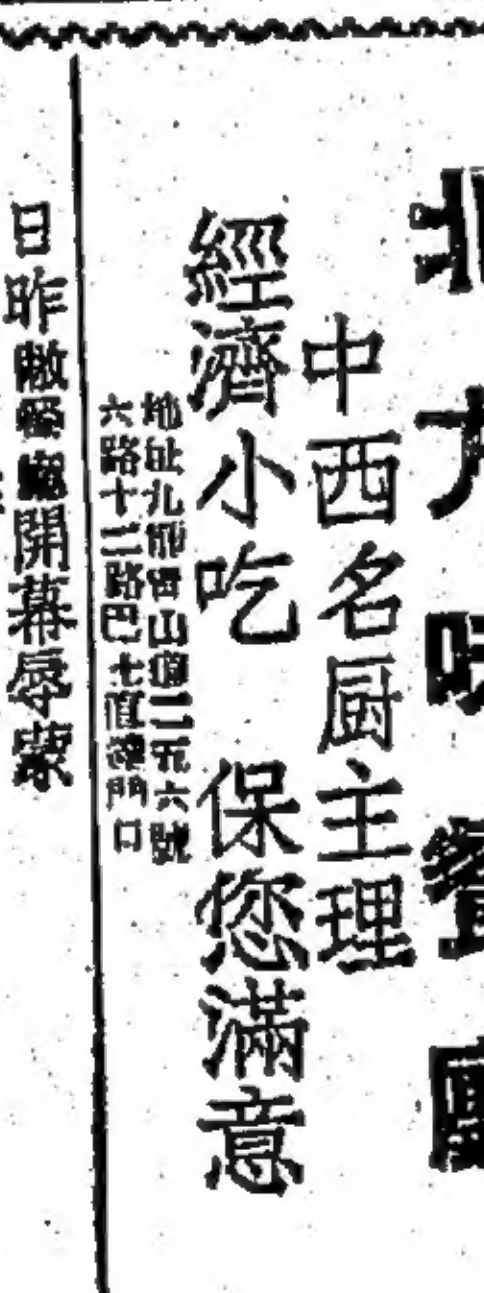 北方味餐廳
中西名厨主理
經濟小吃 保您滿意
地址九龍山道二五六號
六路十二路巴士直達門口
日昨敝餐廳開幕辱蒙